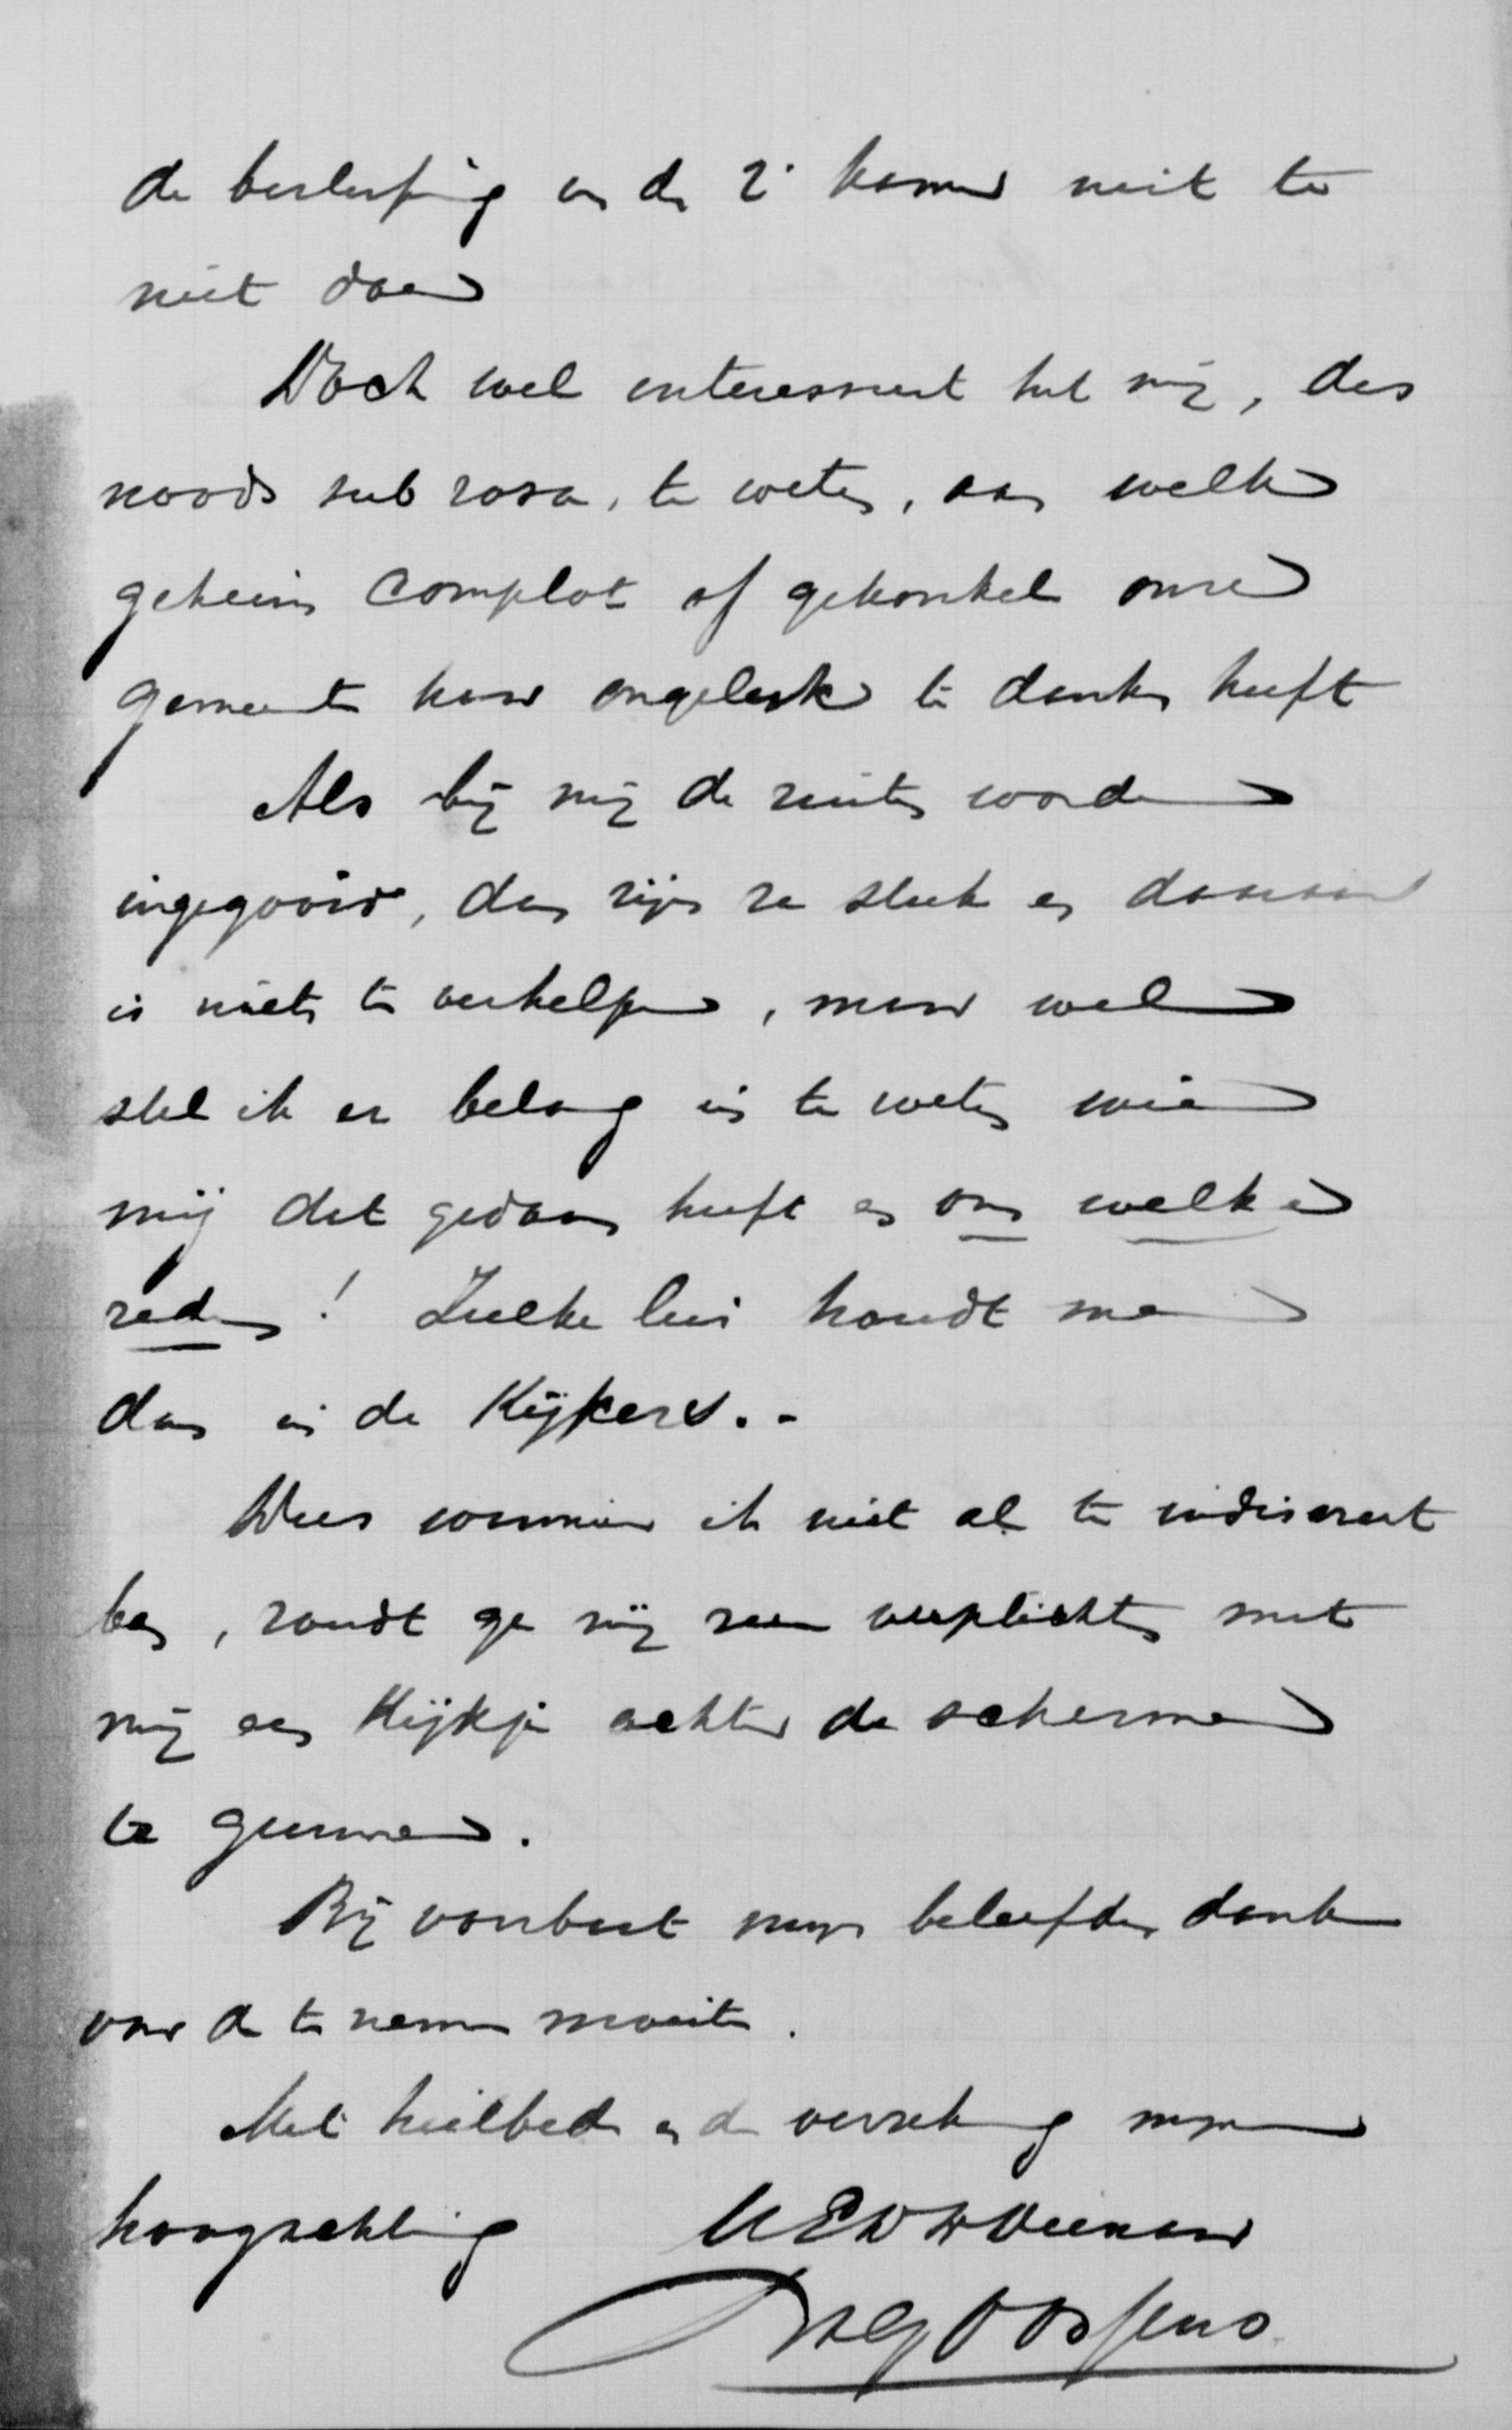 de beslissing en de 2e kamer niet te
niet doen
Doch wel interesseert het mij, des
noods sub rosa, te weten, aan welk
geheim complot of gekonkel onze
gemeente haar ongeluk te danken heeft
Als bij mij de ruiten worden
ingegooid, dan zijn ze stuk en daaraan
is niets te verhelpen, maar wel
stel ik er belang in te weten wie
mij dat gedaan heeft en om welke
reden! Zulke lui houdt men
dan in de Kijkers.-
Wees wanneer ik niet al te indiscreet
ben, zoudt ge mij zeer verplichten met
mij een Kijkje achter de schermen
te gunnen.
Bij voorbaat mijn beleefden dank
voor de te nemen moeite.
Met heilbede en de verzekering mijner
hoogachting UEDW Dienaar
Goossens